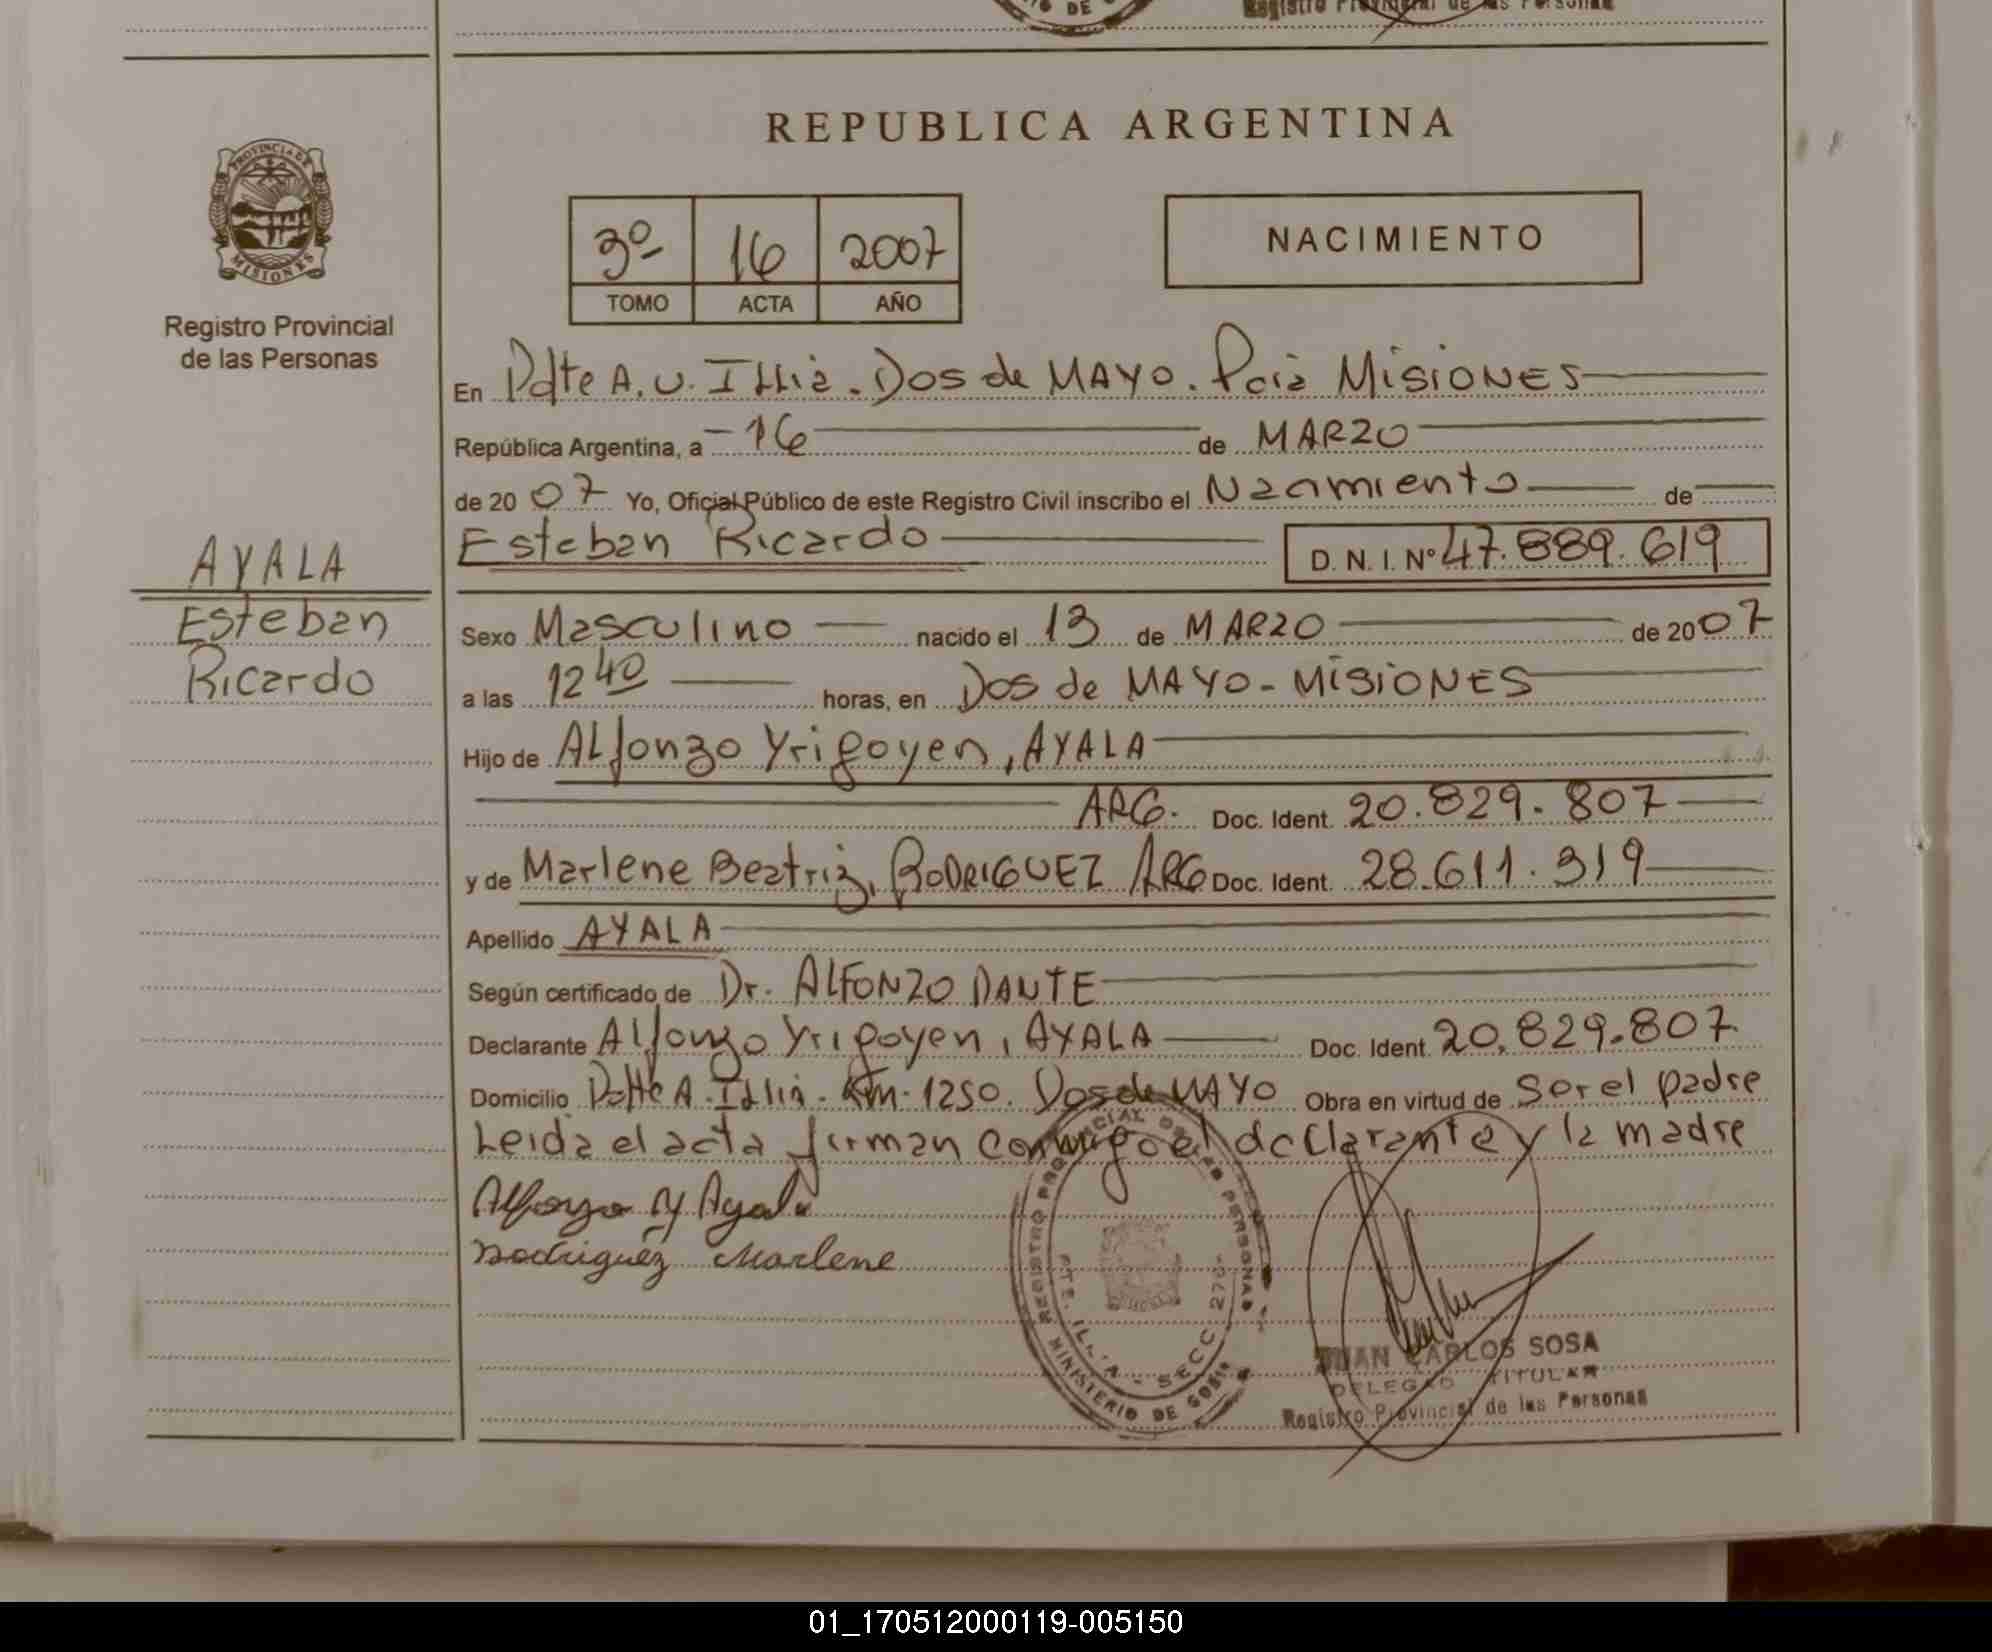 Registro Provincial de las Personas
REPUBLICA ARGENTINA
PROVINCIA DE
MISIONES
Registro Provincial
de las Personas
3º 16 2007
TOMO ACTA AÑO
NACIMIENTO
En Pdte A. U. Illia. Dos de MAYO. Pcia MISIONES
República Argentina, a 16 de MARZO
de 20 07 Yo, Oficial Público de este Registro Civil inscribo el Nacimiento de
Esteban Ricardo D. N. I. Nº 47.889.619
AYALA
Esteban
Ricardo
Sexo Masculino nacido el 13 de MARZO de 20 07
a las 12 40 horas, en Dos de MAYO - MISIONES
Hijo de Alfonzo Yrigoyen, AYALA
ARG. Doc. Ident. 20.829.807
y de Marlene Beatriz, RODRIGUEZ ARG Doc. Ident. 28.611.319
Apellido AYALA
Según certificado de Dr. ALFONZO DANTE
Declarante Alfonzo Yrigoyen, AYALA Doc. Ident. 20.829.807
Domicilio Pdte A. Illia. Km. 1250. Dos de MAYO Obra en virtud de Ser el padre
Leida el acta firman conmigo el declarante y la madre
Alfonzo Y Ayala
Rodriguez Marlene
REGISTRO PROVINCIAL DE LAS PERSONAS
MINISTERIO DE
SECC
JUAN CARLOS SOSA
DELEGADO TITULAR
Registro Provincial de las Personas
01_170512000119-005150